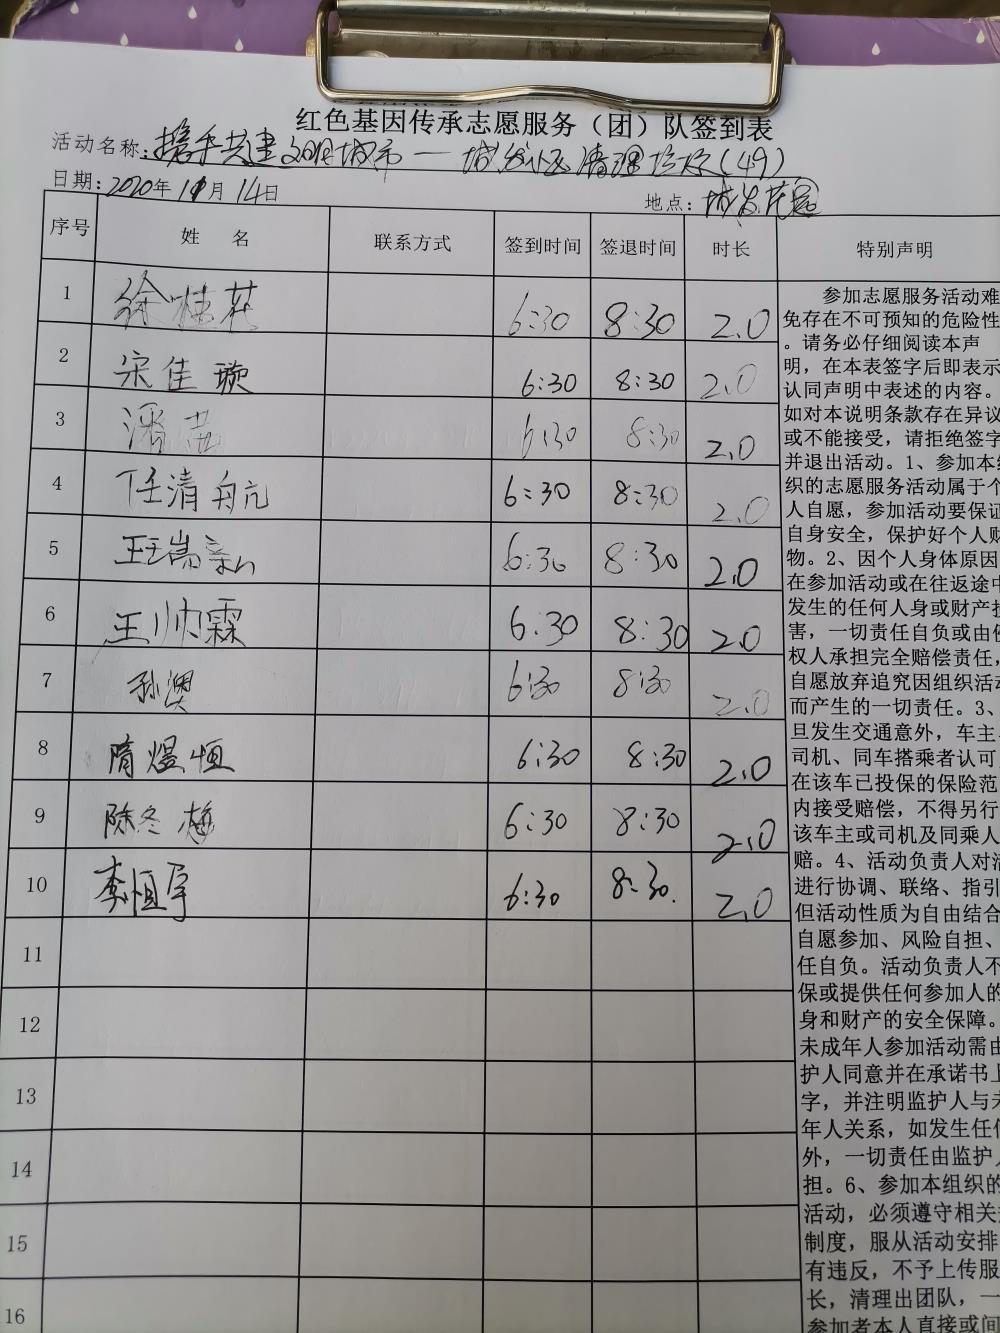 红色基因传承志愿服务（团）队签到表
活动名称：携手共建文明城市——城发社区清理垃圾(49)
日期：2020年 月14日 地点：城发花园
序号 姓名 联系方式 签到时间 签退时间 时长 特别声明
1 徐桂花 6:30 8:30 2.0
2 宋佳璇 6:30 8:30 2.0
3 潘 6:30 8:30 2.0
4 任清航 6:30 8:30 2.0
5 王瑞嵩 6:30 8:30 2.0
6 王帅霖 6:30 8:30 2.0
7 孙澳 6:30 8:30 2.0
8 隋煜恒 6:30 8:30 2.0
9 陈冬梅 6:30 8:30 2.0
10 李恒宇 6:30 8:30. 2.0
11
12
13
14
15
16
参加志愿服务活动难
免存在不可预知的危险性
。请务必仔细阅读本声
明，在本表签字后即表示
认同声明中表述的内容。
如对本说明条款存在异议
或不能接受，请拒绝签字
并退出活动。1、参加本组
织的志愿服务活动属于个
人自愿，参加活动要保证
自身安全，保护好个人财
物。2、因个人身体原因
在参加活动或在往返途中
发生的任何人身或财产损
害，一切责任自负或由侵
权人承担完全赔偿责任，
自愿放弃追究因组织活动
而产生的一切责任。3、
旦发生交通意外，车主、
司机、同车搭乘者认可
在该车已投保的保险范
内接受赔偿，不得另行
该车主或司机及同乘人
赔。4、活动负责人对活
进行协调、联络、指引
但活动性质为自由结合
自愿参加、风险自担、
任自负。活动负责人不
保或提供任何参加人的
身和财产的安全保障。
未成年人参加活动需由
护人同意并在承诺书上
字，并注明监护人与未
年人关系，如发生任何
外，一切责任由监护人
担。6、参加本组织的
活动，必须遵守相关
制度，服从活动安排
有违反，不予上传服
长，清理出团队，一
参加者本人直接或间